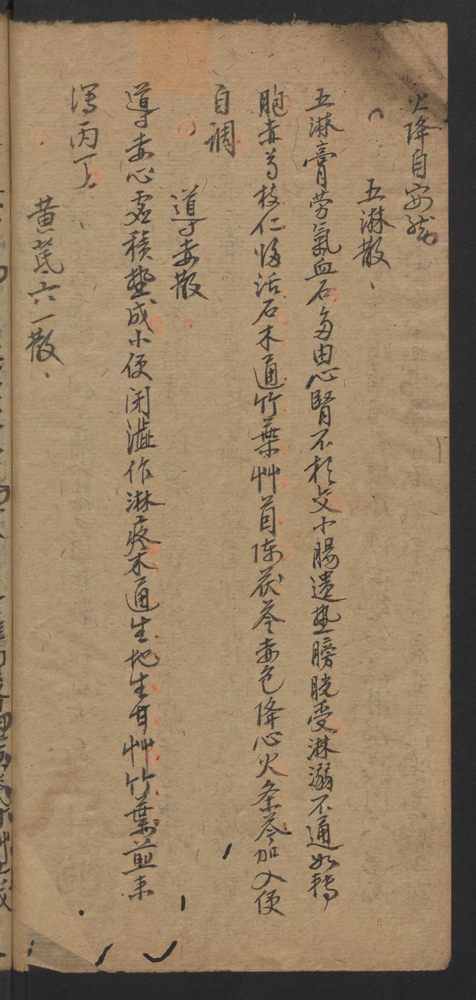 火降自安然
五淋散
五淋膏劳氣血石多由心腎不相交小腸遺熱膀胱受淋溺不通如轉
胞赤芍枝仁归活石木通竹葉艸茵陈茯苓赤色降心火条芩加入便
自調
導赤散
導赤心虚積热成小便闭澁作淋疼木通生地生甘艸竹葉煎来
瀉丙丁
黄芪六一散